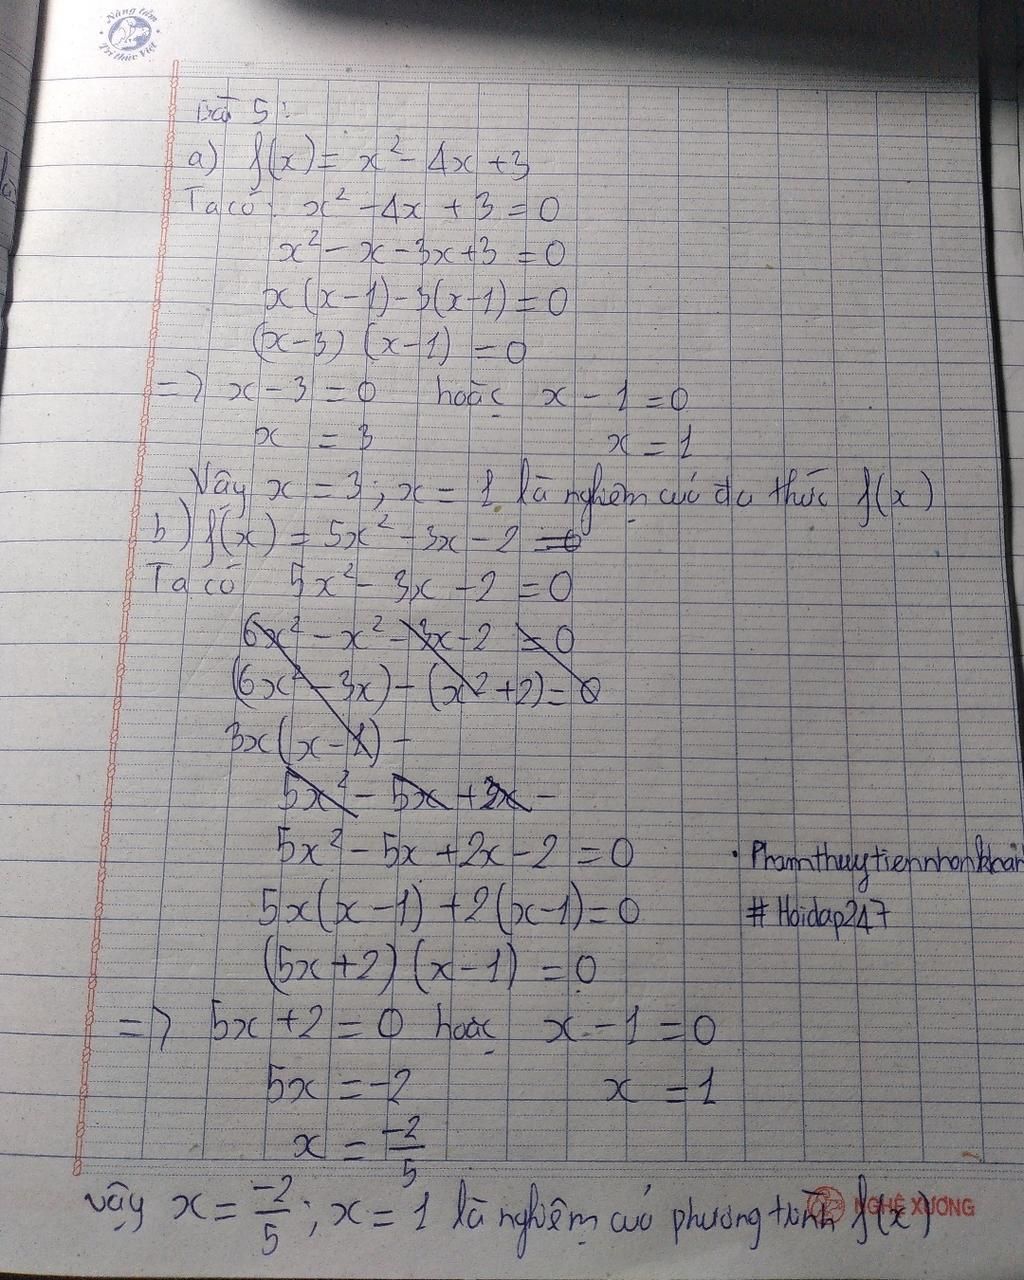 Nâng tầm
Tri thức Việt
Bài 5:
a) f(x) = x² - 4x + 3
Ta có: x² - 4x + 3 = 0
x² - x - 3x + 3 = 0
x(x-1) - 3(x-1) = 0
(x-3) (x-1) = 0
=> x - 3 = 0 hoặc x - 1 = 0
x = 3 x = 1
Vậy x = 3; x = 1 là nghiệm của đa thức f(x)
b) f(x) = 5x² - 3x - 2 = 0
Ta có 5x² - 3x - 2 = 0
6x² - x² - 3x - 2 = 0
(6x² - 3x) - (x² + 2) = 0
3x(x - 1) -
5x² - 5x + 3x -
5x² - 5x + 2x - 2 = 0
5x(x - 1) + 2(x-1) = 0
• Phamthuytiennhonkhai
#Hoidap247
(5x+2) (x-1) = 0
=> 5x + 2 = 0 hoặc x - 1 = 0
5x = -2 x = 1
x = -2/5
Vậy x = -2/5; x = 1 là nghiệm của phương trình f(x)
NGHỆ XƯƠNG